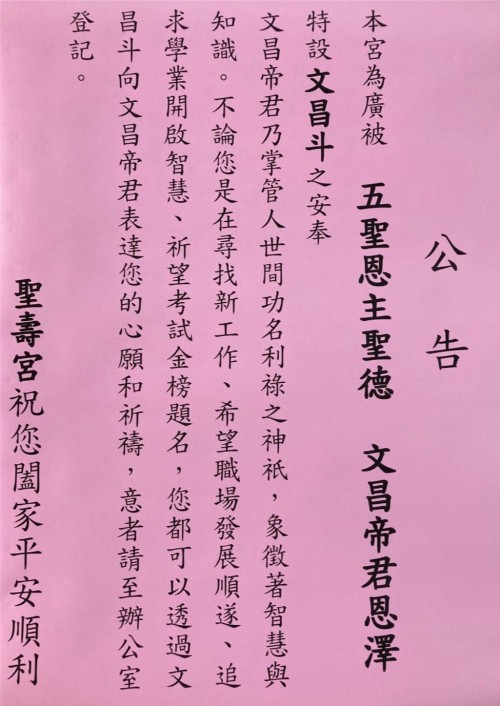 公告
本宮為廣被 五聖恩主聖德 文昌帝君恩澤
特設文昌斗之安奉
文昌帝君乃掌管人世間功名利祿之神祇，象徵著智慧與
知識。不論您是在尋找新工作、希望職場發展順遂、追
求學業開啟智慧、祈望考試金榜題名，您都可以透過文
昌斗向文昌帝君表達您的心願和祈禱，意者請至辦公室
登記。
聖壽宮祝您闔家平安順利